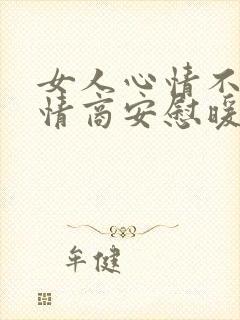 女人心情不
情商安慰暖
牟健